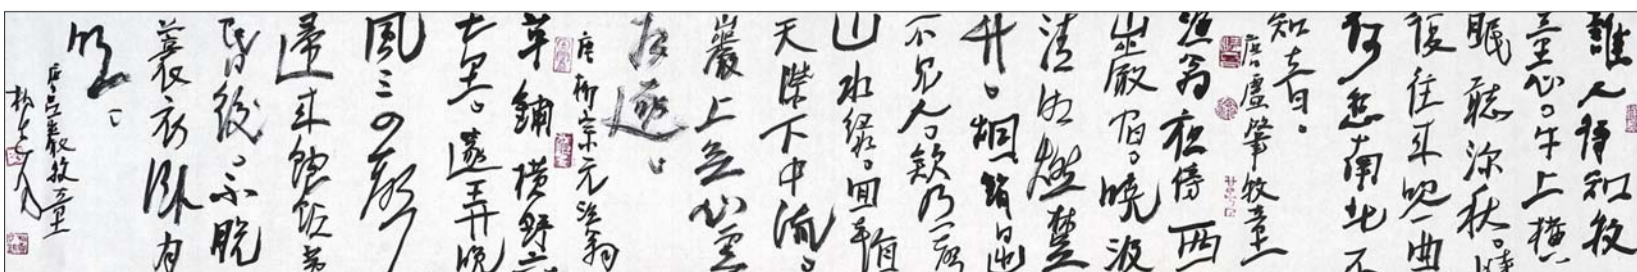 誰人得似牧
童心。牛上橫
眠聽深秋。時
復往來吹一曲
何愁南北不
知音。
唐盧肇牧童
漁翁夜傍西
巖宿。曉汲
清湘燃楚
竹。烟銷日出
不見人。欸乃一聲
山水綠。迴看
天際下中流。
巖上無心雲
相逐。
唐柳宗元漁翁
草鋪橫野六
七里。笛弄晚
風三四聲
歸來飽飯黃
昏後。不脫
蓑衣臥月
明。
唐呂巖牧童